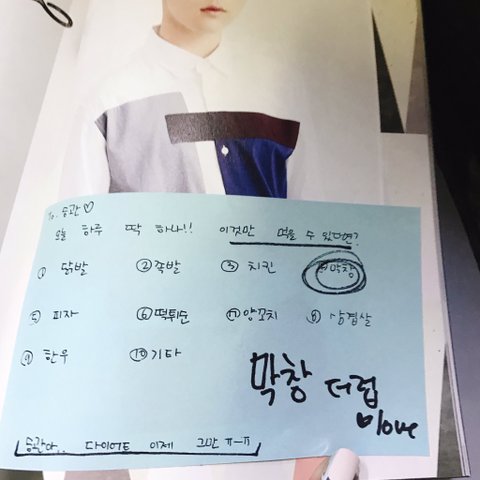 To. 승관♡
오늘 하루 딱 하나!! 이것만 먹을 수 있다면?
① 닭발 ② 족발 ③ 치킨 ④ 막창
⑤ 피자 ⑥ 떡튀순 ⑦ 양꼬치 ⑧ 삼겹살
⑨ 한우 ⑩ 기타
막창 더럽
love
승관아.. 다이어트 이제 그만 ㅠ-ㅠ